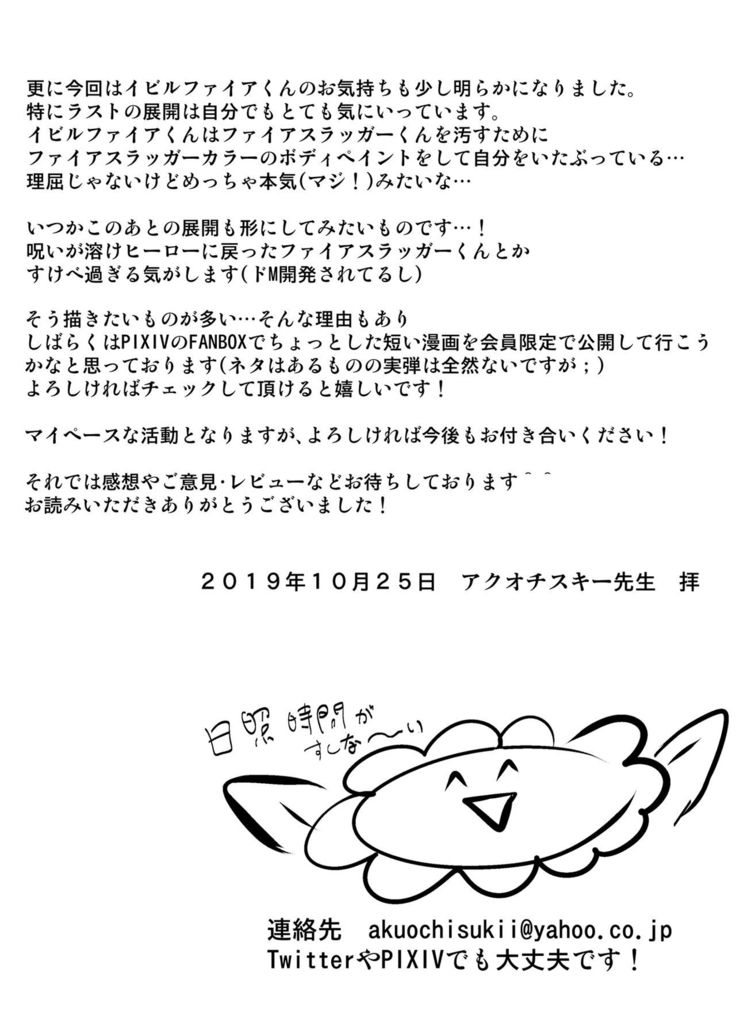 更に今回はイビルファイアくんのお気持ちも少し明らかになりました。
特にラストの展開は自分でもとても気にいっています。
イビルファイアくんはファイアスラッガーくんを汚すために
ファイアスラッガーカラーのボディペイントをして自分をいたぶっている…
理屈じゃないけどめっちゃ本気(マジ！)みたいな…
いつかこのあとの展開も形にしてみたいものです…！
呪いが溶けヒーローに戻ったファイアスラッガーくんとか
すけべ過ぎる気がします(ドM開発されてるし)
そう描きたいものが多い…そんな理由もあり
しばらくはPIXIVのFANBOXでちょっとした短い漫画を会員限定で公開して行こう
かなと思っております(ネタはあるものの実弾は全然ないですが；)
よろしければチェックして頂けると嬉しいです！
マイペースな活動となりますが、よろしければ今後もお付き合いください！
それでは感想やご意見・レビューなどお待ちしております＾＾
お読みいただきありがとうございました！
２０１９年１０月２５日　アクオチスキー先生　拝
日照時間が
すくな〜い
連絡先　akuochisukii@yahoo.co.jp
TwitterやPIXIVでも大丈夫です！